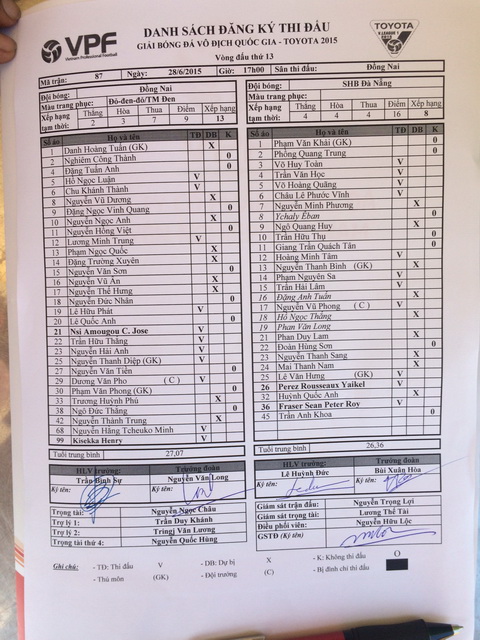 VPF
Vietnam Professional Football
DANH SÁCH ĐĂNG KÝ THI ĐẤU
GIẢI BÓNG ĐÁ VÔ ĐỊCH QUỐC GIA - TOYOTA 2015
Vòng đấu thứ 13
TOYOTA
V.LEAGUE 1
2015
Mã trận: 87 Ngày: 28/6/2015 Giờ: 17h00 Sân thi đấu: Đồng Nai
Đội bóng: Đồng Nai
Màu trang phục: Đỏ-đen-đỏ/TM Đen
Xếp hạng tạm thời: Thắng Hòa Thua Điểm Xếp hạng
2 3 7 9 13
Số áo Họ và tên TĐ DB K
1 Danh Hoàng Tuấn (GK) X
2 Nghiêm Công Thành 0
4 Đặng Tuấn Anh 0
5 Hồ Ngọc Luận V
6 Chu Khánh Thành V
8 Nguyễn Vũ Dương X
9 Đặng Ngọc Vinh Quang 0
10 Nguyễn Ngọc Anh X
11 Nguyễn Hồng Việt 0
12 Lương Minh Trung V
13 Phạm Ngọc Quốc X
14 Đặng Trường Xuyên X
15 Nguyễn Văn Sơn 0
16 Nguyễn Vũ Ân X
17 Nguyễn Thế Hưng X
18 Nguyễn Đức Nhân 0
19 Lê Hữu Phát V
20 Lê Quốc Anh 0
21 Nsi Amougou C. Jose V
22 Trần Hữu Thắng V
23 Nguyễn Hải Anh V
25 Nguyễn Thanh Diệp (GK) V
27 Nguyễn Văn Tiến 0
29 Dương Văn Pho ( C ) V
30 Phạm Văn Phong (GK) 0
33 Trương Huỳnh Phú X
38 Ngô Đức Thắng 0
42 Nguyễn Thành Trung X
68 Nguyễn Hằng Tcheuko Minh V
99 Kisekka Henry V
Tuổi trung bình 27,07
HLV trưởng: Trưởng đoàn
Trần Bình Sự Nguyễn Văn Long
Ký tên: Ký tên:
Trọng tài: Nguyễn Ngọc Châu
Trợ lý 1: Trần Duy Khánh
Trợ lý 2: Trịnh Văn Lương
Trọng tài thứ 4: Nguyễn Quốc Hùng
Đội bóng: SHB Đà Nẵng
Màu trang phục:
Xếp hạng tạm thời: Thắng Hòa Thua Điểm Xếp hạng
4 4 4 16 8
Số áo Họ và tên TĐ DB K
1 Phạm Văn Khải (GK) 0
2 Phồng Quang Trung 0
3 Võ Huy Toàn V
4 Trần Văn Học V
5 Võ Hoàng Quảng V
6 Châu Lê Phước Vĩnh V
7 Nguyễn Minh Phương X
8 Ychaly Êban 0
9 Ngô Quang Huy X
10 Trần Hữu Thụ 0
11 Giang Trần Quách Tân 0
12 Hoàng Minh Tâm V
13 Nguyễn Thanh Bình (GK) X
14 Phạm Nguyên Sa V
15 Trần Hải Lâm V
16 Đặng Anh Tuấn X
17 Nguyễn Vũ Phong ( C ) V
18 Hồ Ngọc Thắng X
19 Phan Văn Long
21 Phan Duy Lam X
22 Đoàn Hùng Sơn 0
23 Nguyễn Thanh Sang X
24 Mai Thanh Nam X
25 Lê Văn Hưng (GK) V
26 Perez Rousseaux Yaikel V
32 Huỳnh Quốc Anh X
36 Fraser Sean Peter Roy V
45 Trần Anh Khoa 0
Tuổi trung bình 26,36
HLV trưởng: Trưởng đoàn
Lê Huỳnh Đức Bùi Xuân Hòa
Ký tên: Ký tên:
Giám sát trận đấu: Nguyễn Trọng Lợi
Giám sát trọng tài: Lương Thế Tài
Điều phối viên: Nguyễn Hữu Lộc
GSTĐ (Ký tên)
Ghi chú: - TĐ: Thi đấu V - DB: Dự bị X - K: Không thi đấu O
- Thủ môn (GK) - Đội trưởng (C) - Bị đình chỉ thi đấu